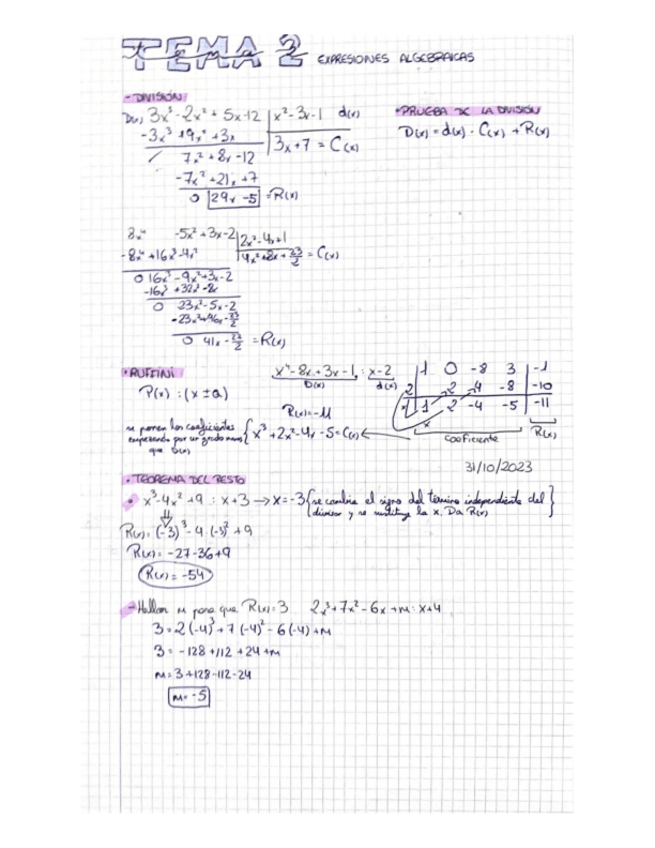 TEMA 2 EXPRESIONES ALGEBRAICAS
- DIVISIÓN
D(x) 3x³ - 2x² + 5x - 12 | x² - 3x - 1 d(x)
-3x³ + 9x² + 3x 3x + 7 = C(x)
7x² + 8x - 12
-7x² + 21x + 7
0 29x - 5 = R(x)
• PRUEBA DE LA DIVISIÓN
D(x) = d(x) · C(x) + R(x)
8x⁴ -5x² + 3x - 2 | 2x² - 4x + 1
-8x⁴ + 16x³ - 4x² 4x² + 8x + 23/2 = C(x)
0 16x³ - 9x² + 3x - 2
-16x³ + 32x² - 8x
0 23x² - 5x - 2
-23x² + 46x - 23/2
0 41x - 27/2 = R(x)
• RUFFINI
P(x) : (x ± a)
x⁴ - 8x + 3x - 1 : x - 2
D(x) d(x)
R(x) = -11
se ponen los coeficientes
empezando por un grado menos
que D(x)
{ x³ + 2x² - 4x - 5 = C(x) ←
1 0 -8 3 -1
2 2 4 -8 -10
x 1 2 -4 -5 -11
x
coeficiente R(x)
31/10/2023
• TEOREMA DEL RESTO
• x³ - 4x² + 9 : x + 3 → x = -3 { se cambia el signo del término independiente del
divisor y se sustituye la x. Da R(x) }
R(x) = (-3)³ - 4 · (-3)² + 9
R(x) = -27 - 36 + 9
R(x) = -54
- Hallar m para que R(x) = 3 2x³ + 7x² - 6x + m : x + 4
3 = 2(-4)³ + 7(-4)² - 6(-4) + m
3 = -128 + 112 + 24 + m
m = 3 + 128 - 112 - 24
m = -5